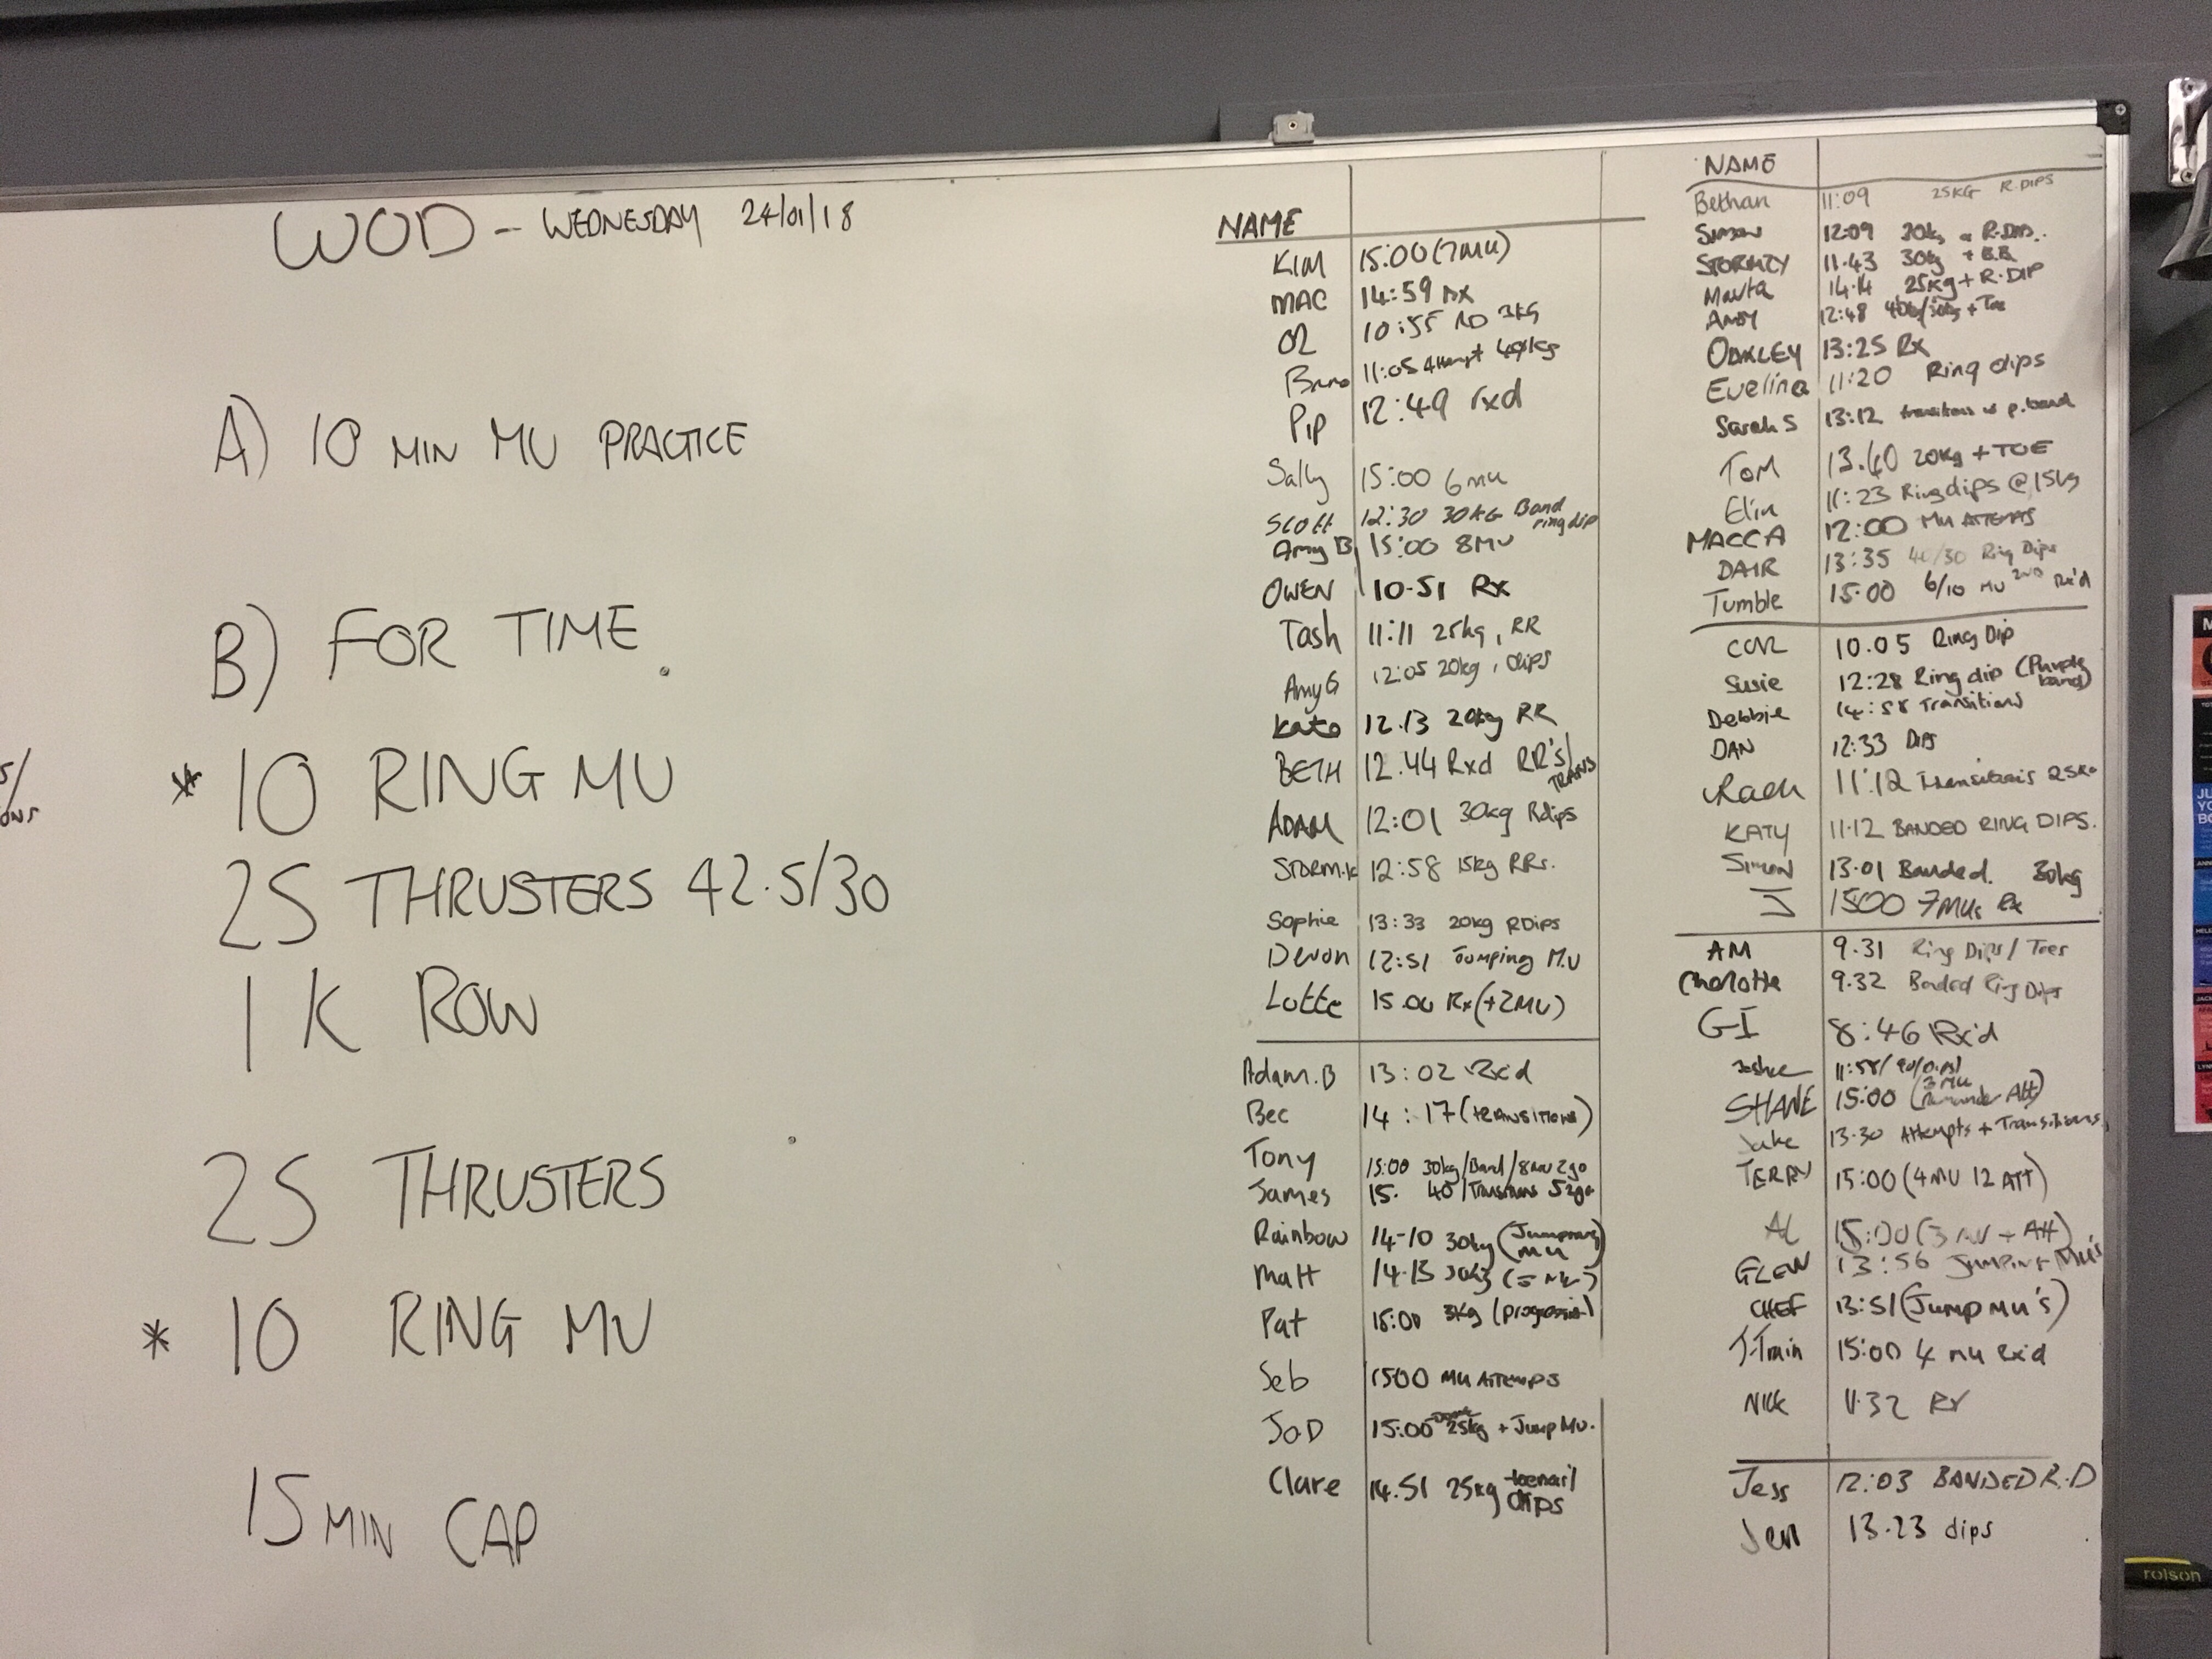 WOD – WEDNESDAY 24/01/18
A) 10 MIN MU PRACTICE
B) FOR TIME.
* 10 RING MU
25 THRUSTERS 42.5/30
1K ROW
25 THRUSTERS
* 10 RING MU
15 MIN CAP
NAME
KIM 15:00 (7MU)
MAC 14:59 RX
10:55 3KG
11:05 Attempt
Pip 12:49 rxd
Sally 15:00 6mu
SCOTT 12:30 30KG Band ring dip
Amy B 15:00 8MU
OWEN 10.51 Rx
Tash 11:11 25kg, RR
Amy G 12:05 20kg, dips
Kate 12.13 20kg RR
BETH 12.44 Rxd RR's/ TRANS
ADAM 12:01 30kg Rdips
STORM.K 12:58 15kg RRs.
Sophie 13:33 20kg RDips
Devon 12:51 Jumping M.U
Lotte 15.00 Rx (+2MU)
Adam.B 13:02 Rx'd
Bec 14:17 (TRANSITIONS)
Tony 15:00 30kg/Band/8mu 2go
James 15. 40/Transitions 52go
Rainbow 14-10 30kg (Jumping mu)
Matt 14.15
Pat 15:00 (progression)
Seb 1500 MU ATTEMPS
Jo.D 15:00 25kg + Jump MU.
Clare 14.51 25kg toenail dips
NAME
Bethan 11:09 25KG R.DIPS
Simon 12:09 R.Dips.
STORMZY 11.43 30kg
Marta 14.14 25kg + R.DIP
Andy 12:48 + Toe
OAKLEY 13:25 Rx
Evelina 11:20 Ring dips
Sarah S 13:12 transitions w p.band
TOM 13.40 20kg + TOE
Elin 11:23 Ring dips @ 15kg
MACCA 12:00 MU ATTEMPTS
DAIR 13:35 40/30 Ring Dips
Tumble 15:00 6/10 MU 2ND Rx'd
10.05 Ring Dip
Susie 12:28 Ring dip (Purple band)
Debbie 14:58 Transitions
DAN 12:33 Dips
Rach 11:12 Transitions 25kg
KATY 11.12 BANDED RING DIPS.
Simon 13.01 Banded. 30kg
J 1500 7MUs Rx
AM 9.31 Ring Dips / Toes
Charlotte 9.32 Banded Ring Dips
GI 8:46 Rx'd
11:58
SHANE 15:00 (3 MU Remainder Att)
Jake 13.30 Attempts + Transitions
TERRY 15:00 (4 MU 12 ATT)
AL 15:00 (3 MU + Att)
GLEW 13:56 Jumping Mu's
CHEF 13:51 (Jump mu's)
J-Train 15:00 4 mu Rx'd
NICK 11.32 RX
Jess 12:03 BANDED R.D
Jen 13.23 dips
rolson